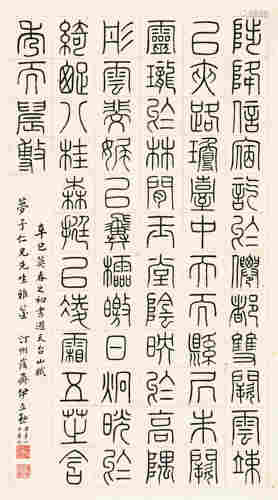 陟降信宿訖於僊都雙闕雲竦
以夾路瓊臺中天而縣居朱闕
靈瓏於林間玉堂陰映於高隅
彤雲斐亹以翼櫺皦日炯晄於
綺疏八桂森挺以淩霜五芝含
秀而晨敷
辛巳莫春之初書遊天台山賦
子仁兄先生雅鑒 汀州 齋伊立勳